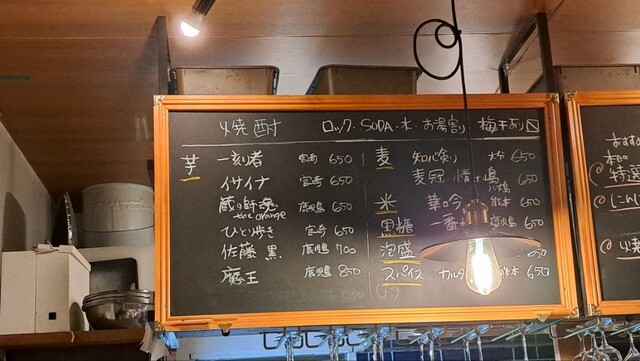 焼酎 ロック・SODA・水・お湯割り 梅干あり
芋 一刻者 宮崎 650
イサイナ 宮崎 650
蔵の師魂 the orange 鹿児島 650
ひとり歩き 宮崎 650
佐藤 黒 鹿児島 700
魔王 鹿児島 850
麦 知心剣 大分 650
麦冠 情け嶋 八丈島 650
米 華吟 熊本 650
黒糖 一番 鹿児島 650
泡盛
スパイス カルダ 熊本 650
おすすめ
本日の
特選
にんじ